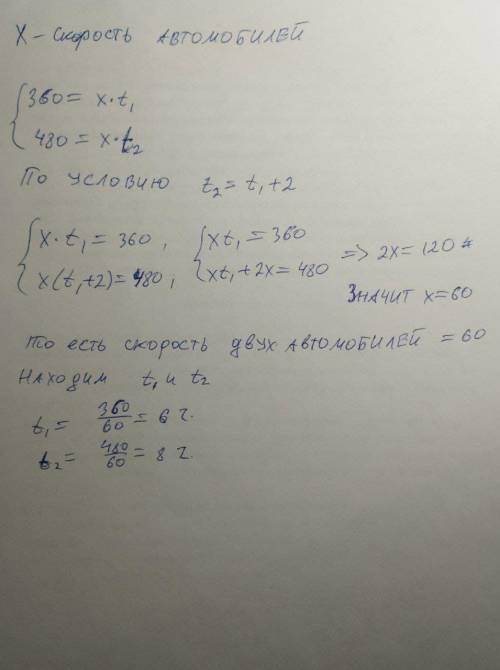 X – скорость автомобилей
360 = x · t₁
480 = x · t₂
По условию t₂ = t₁ + 2
x · t₁ = 360, xt₁ = 360
x(t₁ + 2) = 480, xt₁ + 2x = 480 => 2x = 120
Значит x = 60
То есть скорость двух автомобилей = 60
Находим t₁ и t₂
t₁ = 360/60 = 6 ч.
t₂ = 480/60 = 8 ч.